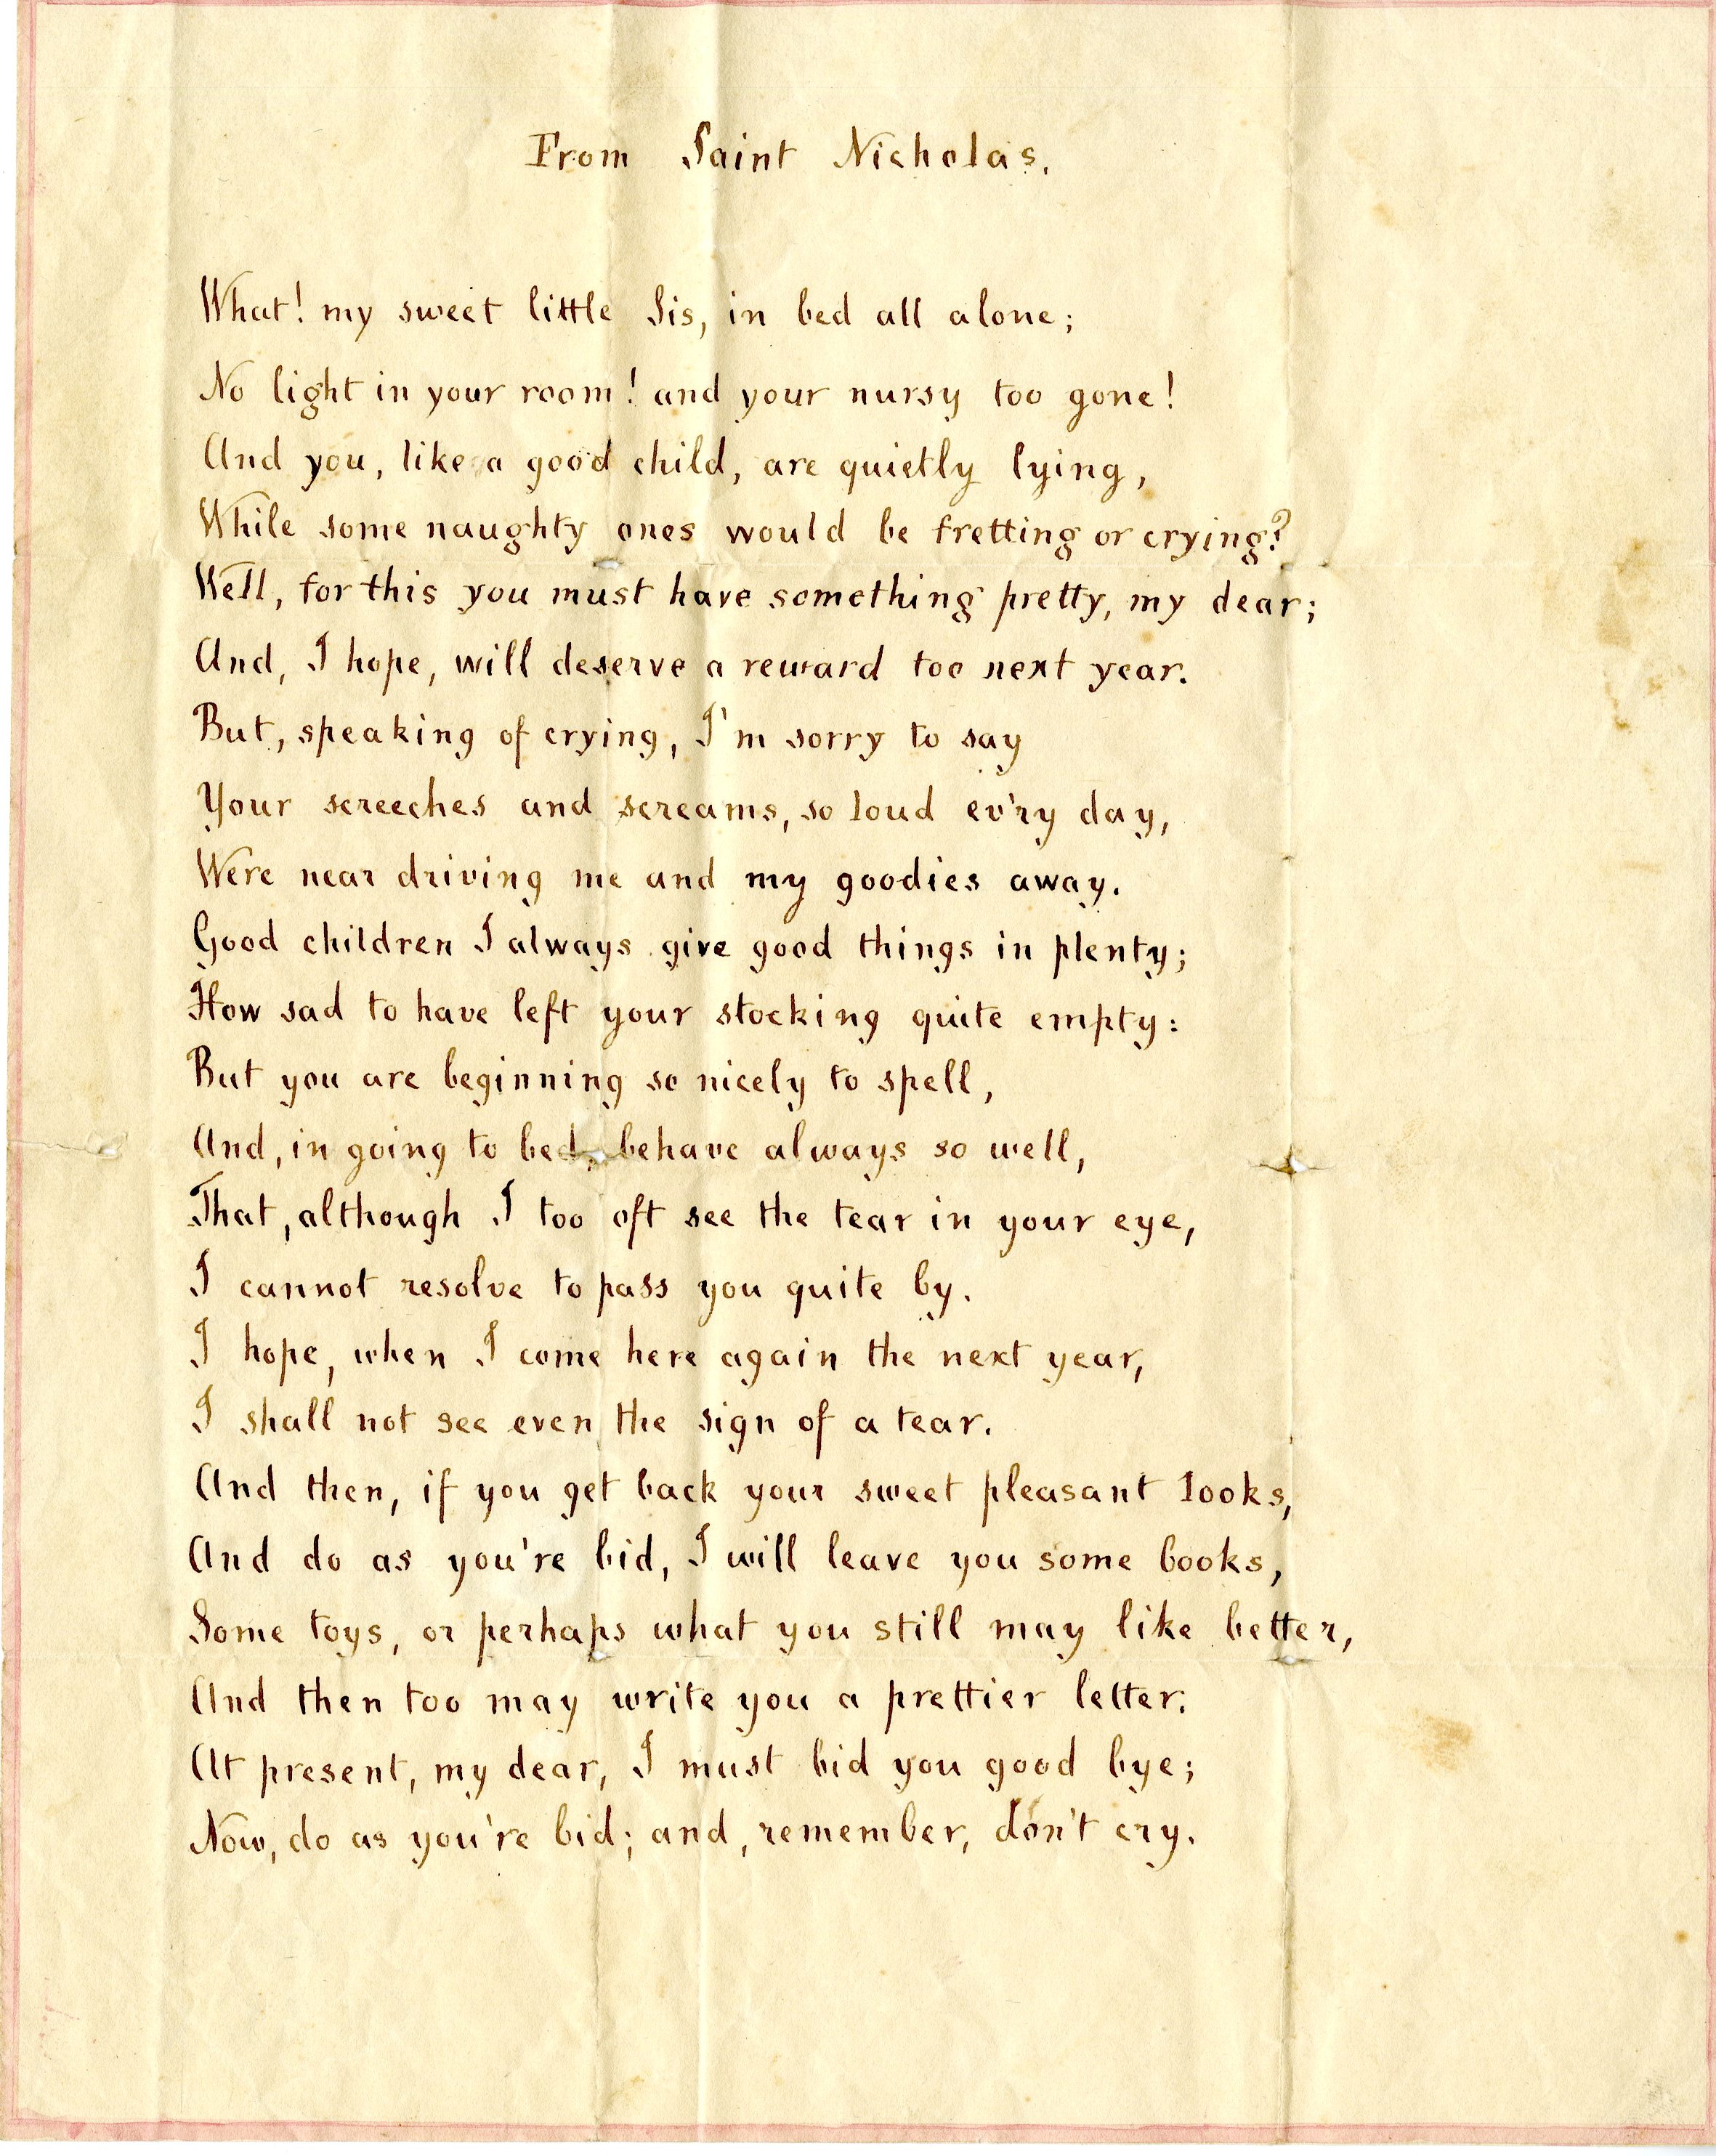 From Saint Nicholas.
What! my sweet little Sis, in bed all alone;
No light in your room! and your nursy too gone!
And you, like a good child, are quietly lying,
While some naughty ones would be fretting or crying?
Well, for this you must have something pretty, my dear;
And, I hope, will deserve a reward too next year.
But, speaking of crying, I'm sorry to say
Your screeches and screams, so loud ev'ry day,
Were near driving me and my goodies away.
Good children I always give good things in plenty;
How sad to have left your stocking quite empty:
But you are beginning so nicely to spell,
And, in going to bed, behave always so well,
That, although I too oft see the tear in your eye,
I cannot resolve to pass you quite by.
I hope, when I come here again the next year,
I shall not see even the sign of a tear.
And then, if you get back your sweet pleasant looks,
And do as you're bid, I will leave you some books,
Some toys, or perhaps what you still may like better,
And then too may write you a prettier letter.
At present, my dear, I must bid you good bye;
Now, do as you're bid; and, remember, don't cry.